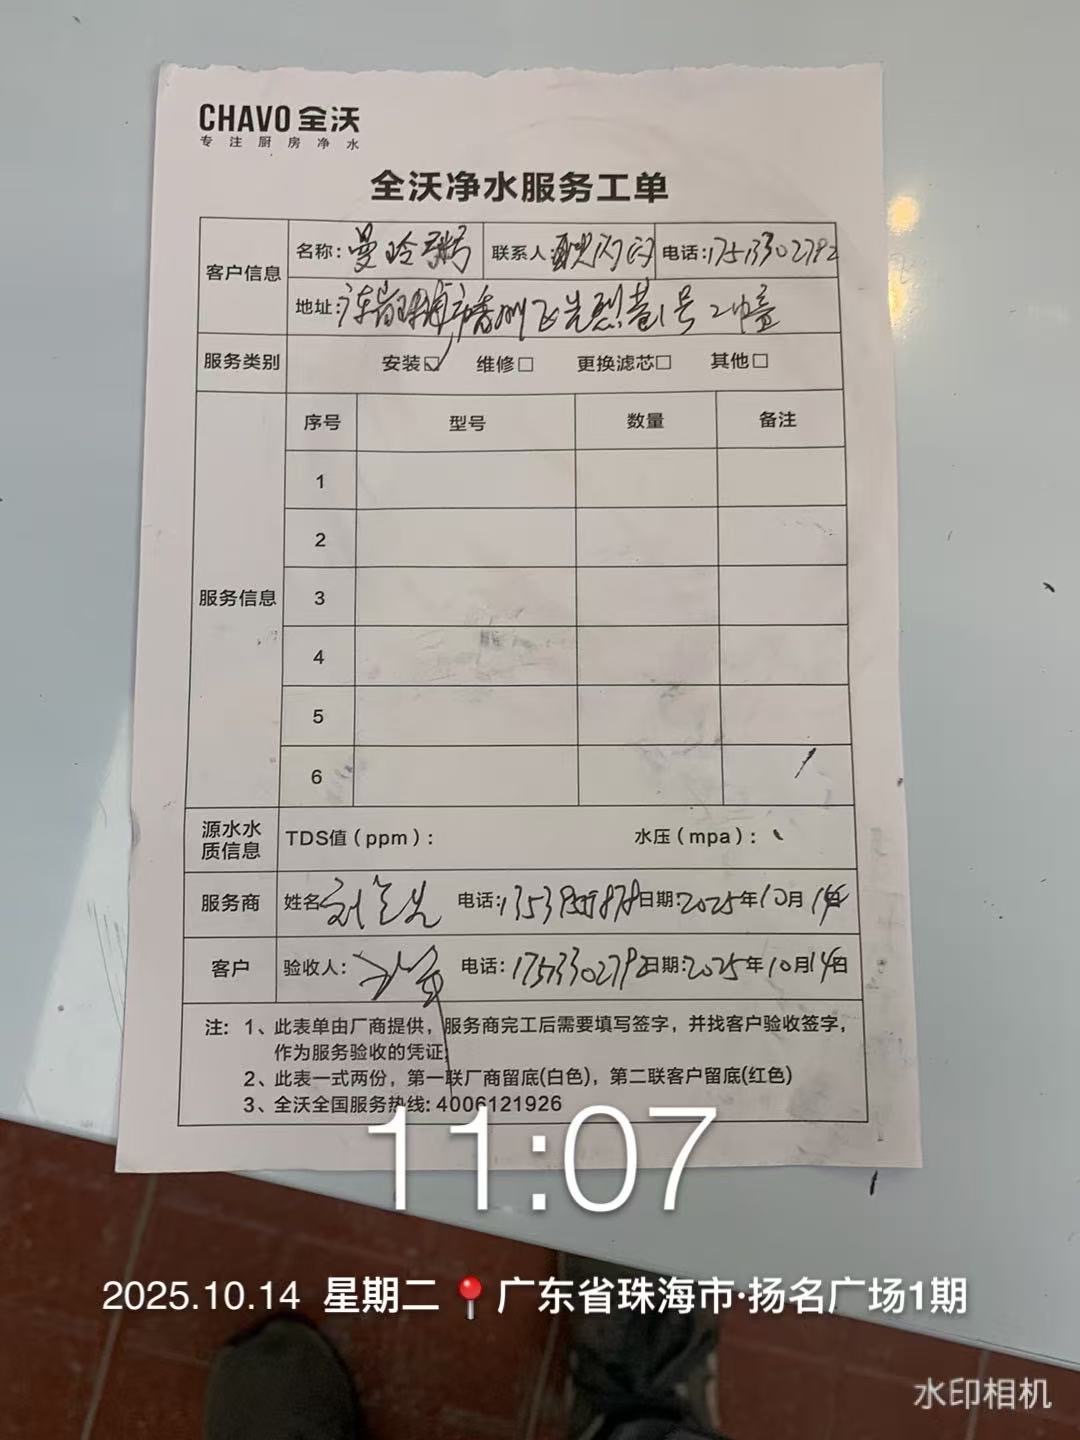 CHAVO 全沃
专注厨房净水
全沃净水服务工单
客户信息 名称: 曼玲粥 联系人: 闪闪 电话: 17513302792
地址: 广东省珠海市香洲区先烈巷1号2幢
服务类别 安装☑ 维修□ 更换滤芯□ 其他□
服务信息 序号 型号 数量 备注
1
2
3
4
5
6
源水水质信息 TDS值(ppm): 水压(mpa):
服务商 姓名 刘 电话: 日期: 2025年10月14日
客户 验收人: 电话: 17513302792 日期: 2025年10月14日
注: 1、此表单由厂商提供，服务商完工后需要填写签字，并找客户验收签字，
作为服务验收的凭证;
2、此表一式两份，第一联厂商留底(白色)，第二联客户留底(红色)
3、全沃全国服务热线: 4006121926
11:07
2025.10.14 星期二 📍广东省珠海市·扬名广场1期
水印相机